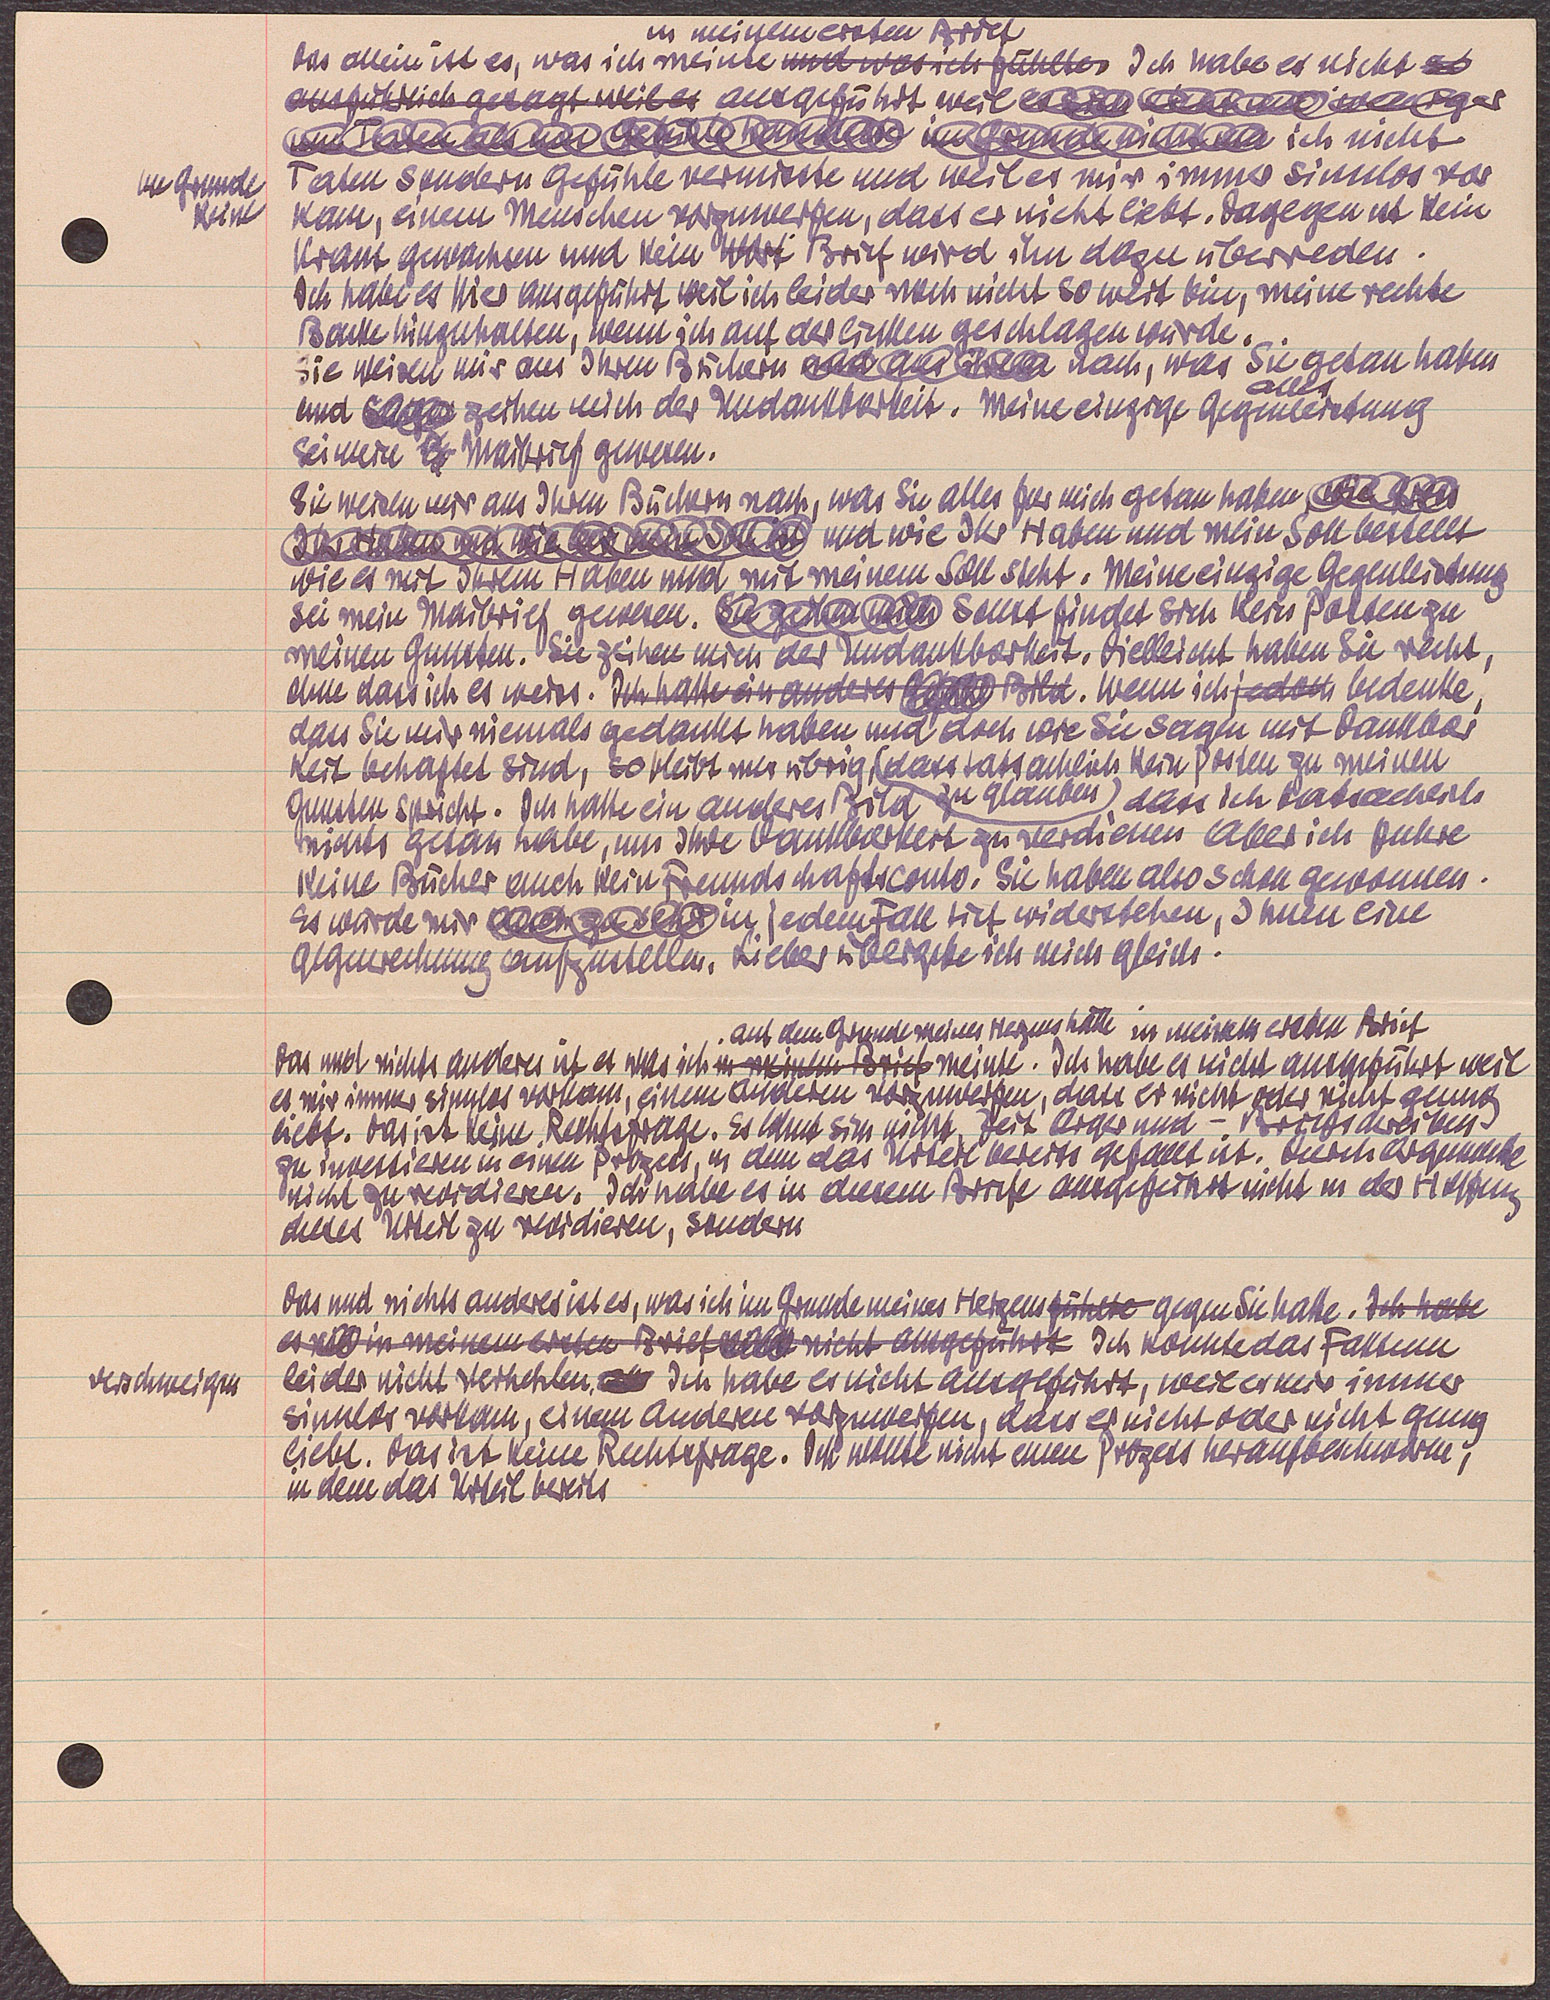 in meinem ersten Brief
Das allein ist es, was ich meinte und was ich fühlte. Ich habe es nicht so
ausführlich gesagt weil es ausgeführt weil weniger
im Grunde nicht ich nicht
im Grunde
keine
Taten sondern Gefühle vermisste und weil es mir immer sinnlos vor
kam, einem Menschen vorzuwerfen, dass er nicht liebt. Dagegen ist kein
Kraut gewachsen und kein Wort Brief wird ihn dazu überreden.
Ich habe es hier ausgeführt weil ich leider noch nicht so weit bin, meine rechte
Backe hinzuhalten, wenn ich auf der linken geschlagen wurde.
Sie weisen mir aus Ihren Büchern und aus Ihrem nach, was Sie getan haben
alles
und sagen zeihen mich der Undankbarkeit. Meine einzige Gegenleistung
sei mein Maibrief gewesen.
Sie weisen mir aus Ihren Büchern nach, was Sie alles für mich getan haben, wie gross
Ihr Haben und wie mein Soll ist und wie Ihr Haben und mein Soll bestellt
wie es mit Ihrem Haben und mit meinem Soll steht. Meine einzige Gegenleistung
sei mein Maibrief gewesen. Sie zeihen mich Sonst findet sich kein Posten zu
meinen Gunsten. Sie zeihen mich der Undankbarkeit. Vielleicht haben Sie recht,
ohne dass ich es weiss. Ich hatte ein anderes Bild. Wenn ich jedoch bedenke,
dass Sie mir niemals gedankt haben und doch wie Sie sagen mit Dankbar
keit behaftet sind, so bleibt mir übrig, (dass tatsächlich kein Posten zu meinen
Gunsten spricht. Ich hatte ein anderes Bild zu glauben) dass ich tatsächlich
nichts getan habe, um Ihre Dankbarkeit zu verdienen Aber ich führe
keine Bücher auch kein Freundschaftsconto. Sie haben also schon gewonnen.
Es würde mir in jedem Fall tief widerstehen, Ihnen eine
Gegenrechnung aufzustellen. Lieber übergebe ich mich gleich.
auf dem Grunde meines Herzens hatte in meinem ersten Brief
Das und nichts anderes ist es was ich in meinem Brief meinte. Ich habe es nicht ausgeführt weil
es mir immer sinnlos vorkam, einem Anderen vorzuwerfen, dass er nicht oder nicht genug
liebt. Das ist keine Rechtsfrage. Es lohnt sich nicht, Zeit Ärger und – Briefschreiben
zu investieren in einen Prozess, in dem das Urteil bereits gefällt ist. Durch Argumente
nicht zu revidieren. Ich habe es in diesem Briefe ausgeführt nicht in der Hoffnung
dieses Urteil zu revidieren, sondern
Das und nichts anderes ist es, was ich im Grunde meines Herzens fühlte gegen Sie hatte. Ich habe
es in meinem ersten Brief nicht ausgeführt Ich konnte das Faktum
verschweigen
leider nicht verhehlen. Ich habe es nicht ausgeführt, weil es mir immer
sinnlos vorkam, einem Anderen vorzuwerfen, dass er nicht oder nicht genug
liebt. Das ist keine Rechtsfrage. Ich wollte nicht einen Prozess heraufbeschwören,
in dem das Urteil bereits